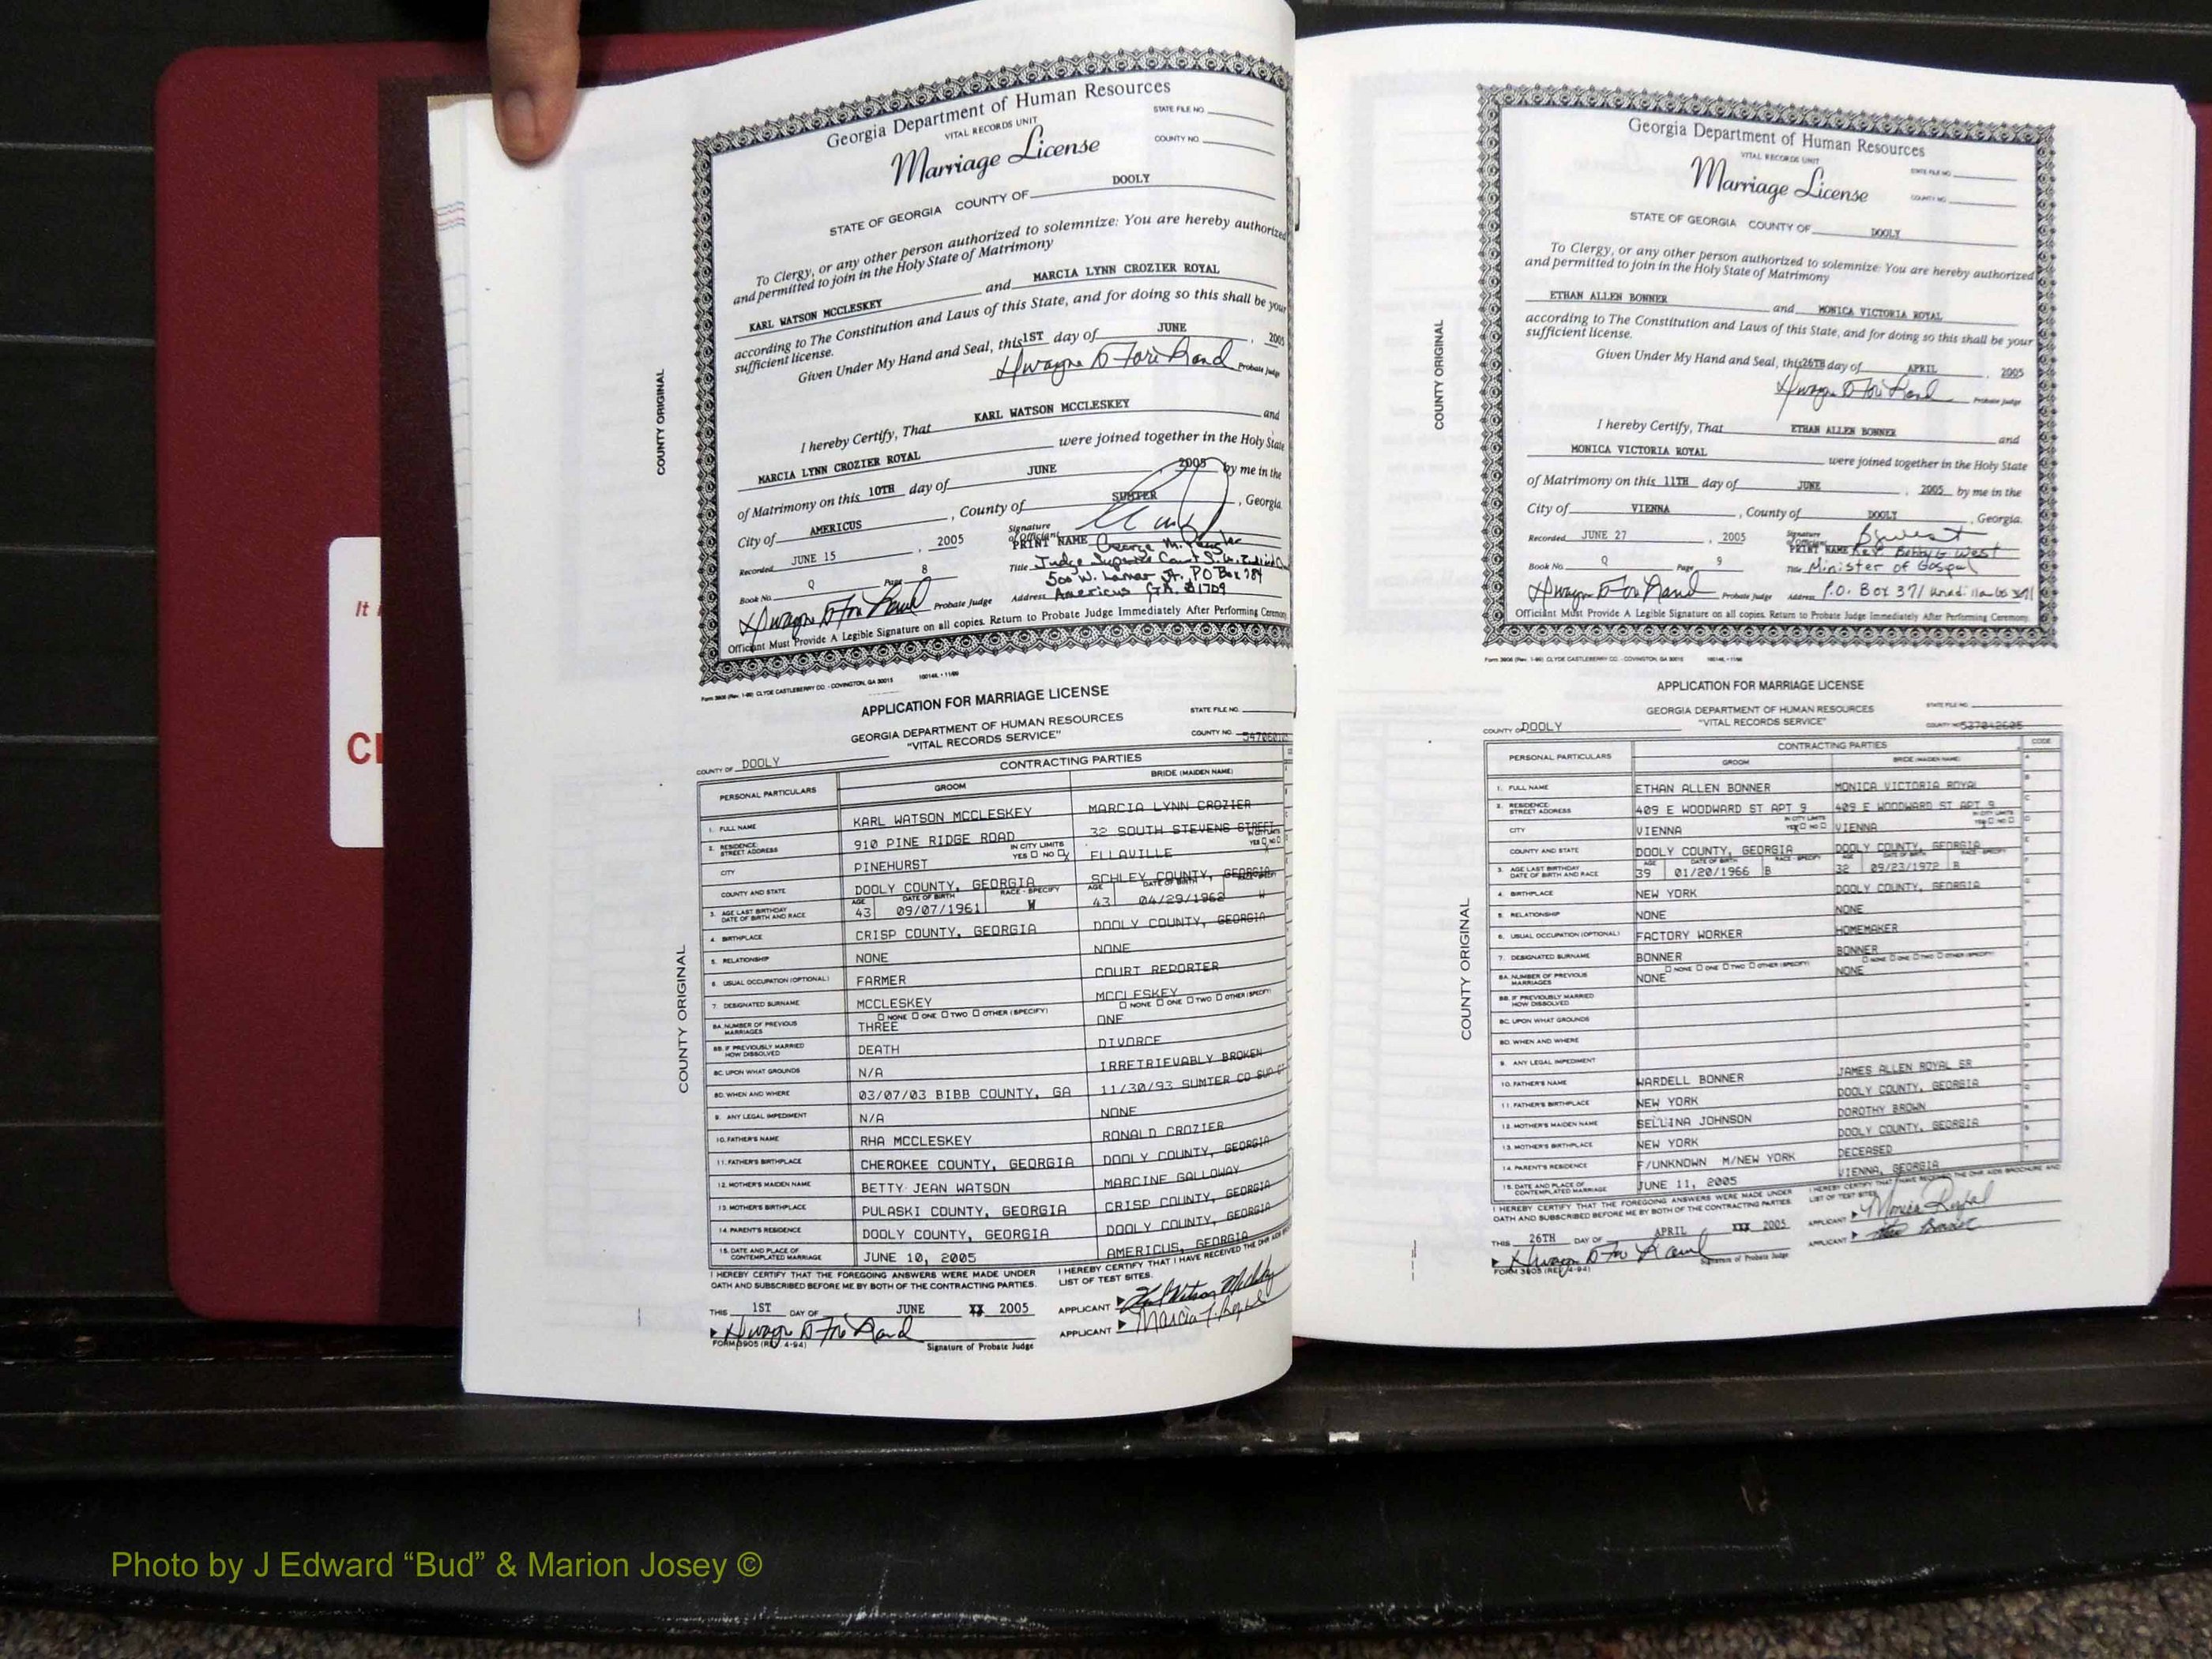 It i
Cl
Georgia Department of Human Resources
VITAL RECORDS UNIT
STATE FILE NO.
Marriage License
COUNTY NO.
STATE OF GEORGIA COUNTY OF DOOLY
To Clergy, or any other person authorized to solemnize: You are hereby authorized
and permitted to join in the Holy State of Matrimony
KARL WATSON MCCLESKEY and MARCIA LYNN CROZIER ROYAL
according to The Constitution and Laws of this State, and for doing so this shall be your
sufficient license.
Given Under My Hand and Seal, this 1ST day of JUNE, 2005
Probate Judge
I hereby Certify, That KARL WATSON MCCLESKEY and
MARCIA LYNN CROZIER ROYAL were joined together in the Holy State
of Matrimony on this 10TH day of JUNE, 2005 by me in the
City of AMERICUS, County of SUMTER, Georgia.
Recorded JUNE 15, 2005 Signature of Officiant
PRINT NAME George M.
Book No. Q Page 8 Title Judge Superior Court S.W.
500 W. Lamar St. PO Box 784
Probate Judge Address Americus GA. 31709
Officiant Must Provide A Legible Signature on all copies. Return to Probate Judge Immediately After Performing Ceremony
Form 3906 (Rev. 1-99) CLYDE CASTLEBERRY CO. - COVINGTON, GA 30015
COUNTY ORIGINAL
APPLICATION FOR MARRIAGE LICENSE
GEORGIA DEPARTMENT OF HUMAN RESOURCES
"VITAL RECORDS SERVICE"
STATE FILE NO.
COUNTY NO.
COUNTY OF DOOLY
CONTRACTING PARTIES
PERSONAL PARTICULARS GROOM BRIDE (MAIDEN NAME)
1. FULL NAME KARL WATSON MCCLESKEY MARCIA LYNN CROZIER
2. RESIDENCE: STREET ADDRESS 910 PINE RIDGE ROAD 32 SOUTH STEVENS STREET
CITY PINEHURST IN CITY LIMITS YES NO ELLAVILLE YES NO
COUNTY AND STATE DOOLY COUNTY, GEORGIA SCHLEY COUNTY, GEORGIA
3. AGE LAST BIRTHDAY DATE OF BIRTH AND RACE AGE 43 DATE OF BIRTH 09/07/1961 RACE - SPECIFY W AGE 43 DATE OF BIRTH 04/29/1962 W
4. BIRTHPLACE CRISP COUNTY, GEORGIA DOOLY COUNTY, GEORGIA
5. RELATIONSHIP NONE NONE
6. USUAL OCCUPATION (OPTIONAL) FARMER COURT REPORTER
7. DESIGNATED SURNAME MCCLESKEY MCCLESKEY
8A. NUMBER OF PREVIOUS MARRIAGES NONE ONE TWO OTHER (SPECIFY) THREE NONE ONE TWO OTHER (SPECIFY) ONE
8B. IF PREVIOUSLY MARRIED HOW DISSOLVED DEATH DIVORCE
8C. UPON WHAT GROUNDS N/A IRRETRIEVABLY BROKEN
8D. WHEN AND WHERE 03/07/03 BIBB COUNTY, GA 11/30/93 SUMTER CO SUP CT
9. ANY LEGAL IMPEDIMENT N/A NONE
10. FATHER'S NAME RHA MCCLESKEY RONALD CROZIER
11. FATHER'S BIRTHPLACE CHEROKEE COUNTY, GEORGIA DOOLY COUNTY, GEORGIA
12. MOTHER'S MAIDEN NAME BETTY JEAN WATSON MARCINE GALLOWAY
13. MOTHER'S BIRTHPLACE PULASKI COUNTY, GEORGIA CRISP COUNTY, GEORGIA
14. PARENT'S RESIDENCE DOOLY COUNTY, GEORGIA DOOLY COUNTY, GEORGIA
15. DATE AND PLACE OF CONTEMPLATED MARRIAGE JUNE 10, 2005 AMERICUS, GEORGIA
I HEREBY CERTIFY THAT THE FOREGOING ANSWERS WERE MADE UNDER
OATH AND SUBSCRIBED BEFORE ME BY BOTH OF THE CONTRACTING PARTIES.
I HEREBY CERTIFY THAT I HAVE RECEIVED THE DHR AIDS
LIST OF TEST SITES.
THIS 1ST DAY OF JUNE XX 2005
APPLICANT Karl Watson McCleskey
APPLICANT Marcia L. Royal
FORM 3905 (REV. 4-94) Signature of Probate Judge
COUNTY ORIGINAL
Georgia Department of Human Resources
VITAL RECORDS UNIT
STATE FILE NO.
Marriage License
COUNTY NO.
STATE OF GEORGIA COUNTY OF DOOLY
To Clergy, or any other person authorized to solemnize: You are hereby authorized
and permitted to join in the Holy State of Matrimony
ETHAN ALLEN BONNER and MONICA VICTORIA ROYAL
according to The Constitution and Laws of this State, and for doing so this shall be your
sufficient license.
Given Under My Hand and Seal, this 26TH day of APRIL, 2005
Probate Judge
I hereby Certify, That ETHAN ALLEN BONNER and
MONICA VICTORIA ROYAL were joined together in the Holy State
of Matrimony on this 11TH day of JUNE, 2005 by me in the
City of VIENNA, County of DOOLY, Georgia.
Recorded JUNE 27, 2005 Signature of Officiant B West
PRINT NAME Rev. Bobby G West
Book No. Q Page 9 Title Minister of Gospel
Probate Judge Address P.O. Box 371
Officiant Must Provide A Legible Signature on all copies. Return to Probate Judge Immediately After Performing Ceremony.
Form 3906 (Rev. 1-99) CLYDE CASTLEBERRY CO. - COVINGTON, GA 30015
COUNTY ORIGINAL
APPLICATION FOR MARRIAGE LICENSE
GEORGIA DEPARTMENT OF HUMAN RESOURCES
"VITAL RECORDS SERVICE"
STATE FILE NO.
COUNTY OF DOOLY
COUNTY NO. 537042605
CONTRACTING PARTIES CODE
PERSONAL PARTICULARS GROOM BRIDE (MAIDEN NAME)
1. FULL NAME ETHAN ALLEN BONNER MONICA VICTORIA ROYAL
2. RESIDENCE: STREET ADDRESS 409 E WOODWARD ST APT 9 409 E WOODWARD ST APT 9
CITY VIENNA IN CITY LIMITS YES NO VIENNA IN CITY LIMITS YES NO
COUNTY AND STATE DOOLY COUNTY, GEORGIA DOOLY COUNTY, GEORGIA
3. AGE LAST BIRTHDAY DATE OF BIRTH AND RACE AGE 39 DATE OF BIRTH 01/20/1966 RACE - SPECIFY B AGE 32 DATE OF BIRTH 09/23/1972 RACE - SPECIFY B
4. BIRTHPLACE NEW YORK DOOLY COUNTY, GEORGIA
5. RELATIONSHIP NONE NONE
6. USUAL OCCUPATION (OPTIONAL) FACTORY WORKER HOMEMAKER
7. DESIGNATED SURNAME BONNER BONNER
8A. NUMBER OF PREVIOUS MARRIAGES NONE ONE TWO OTHER (SPECIFY) NONE NONE ONE TWO OTHER (SPECIFY) NONE
8B. IF PREVIOUSLY MARRIED HOW DISSOLVED
8C. UPON WHAT GROUNDS
8D. WHEN AND WHERE
9. ANY LEGAL IMPEDIMENT
10. FATHER'S NAME WARDELL BONNER JAMES ALLEN ROYAL SR
11. FATHER'S BIRTHPLACE NEW YORK DOOLY COUNTY, GEORGIA
12. MOTHER'S MAIDEN NAME SELLINA JOHNSON DOROTHY BROWN
13. MOTHER'S BIRTHPLACE NEW YORK DOOLY COUNTY, GEORGIA
14. PARENT'S RESIDENCE F/UNKNOWN M/NEW YORK DECEASED
15. DATE AND PLACE OF CONTEMPLATED MARRIAGE JUNE 11, 2005 VIENNA, GEORGIA
I HEREBY CERTIFY THAT THE FOREGOING ANSWERS WERE MADE UNDER
OATH AND SUBSCRIBED BEFORE ME BY BOTH OF THE CONTRACTING PARTIES.
I HEREBY CERTIFY THAT I HAVE RECEIVED THE DHR AIDS BROCHURE AND
LIST OF TEST SITES.
THIS 26TH DAY OF APRIL XXX 2005
APPLICANT Monica Royal
APPLICANT
FORM 3905 (REV. 4-94) Signature of Probate Judge
COUNTY ORIGINAL
Photo by J Edward “Bud” & Marion Josey ©